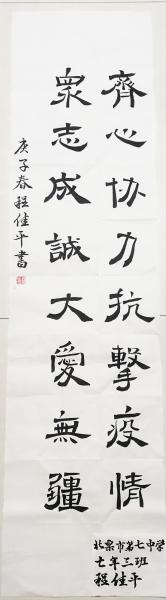 齊心协力抗擊疫情
衆志成誠大愛無疆
庚子春程佳平書
北泉市第七中学
七年三班
程佳平